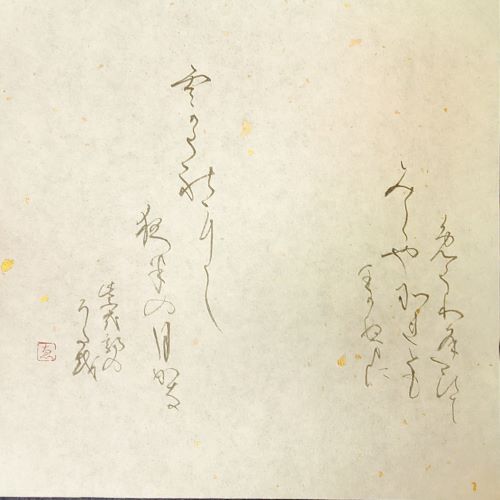 めくりあひて
みしやそれとも
わかぬまに
雲かくれにし
夜半の月かな
紫式部の